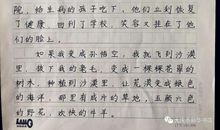 院，给生病的孩子吃下，他们立刻恢复
了健康，回到了学校，笑容又挂在了他
们的脸上。
如果我变成孙悟空，我就飞到沙漠
里，拔下我的毫毛，变成一棵棵茂盛的
树木，种植到沙漠里，让荒漠变成绿色
的海洋，那里有成片的草地，五颜六色
的野花，欢快的牛羊。